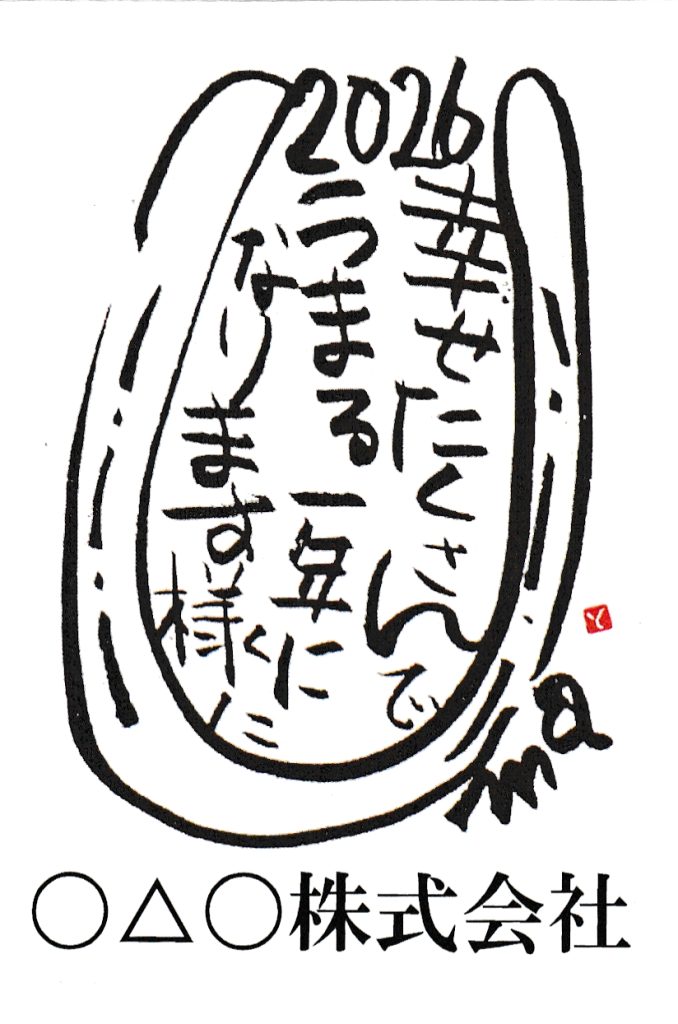 2026
幸せたくさんで
うまる一年に
なります様に
ma
と
○△○株式会社